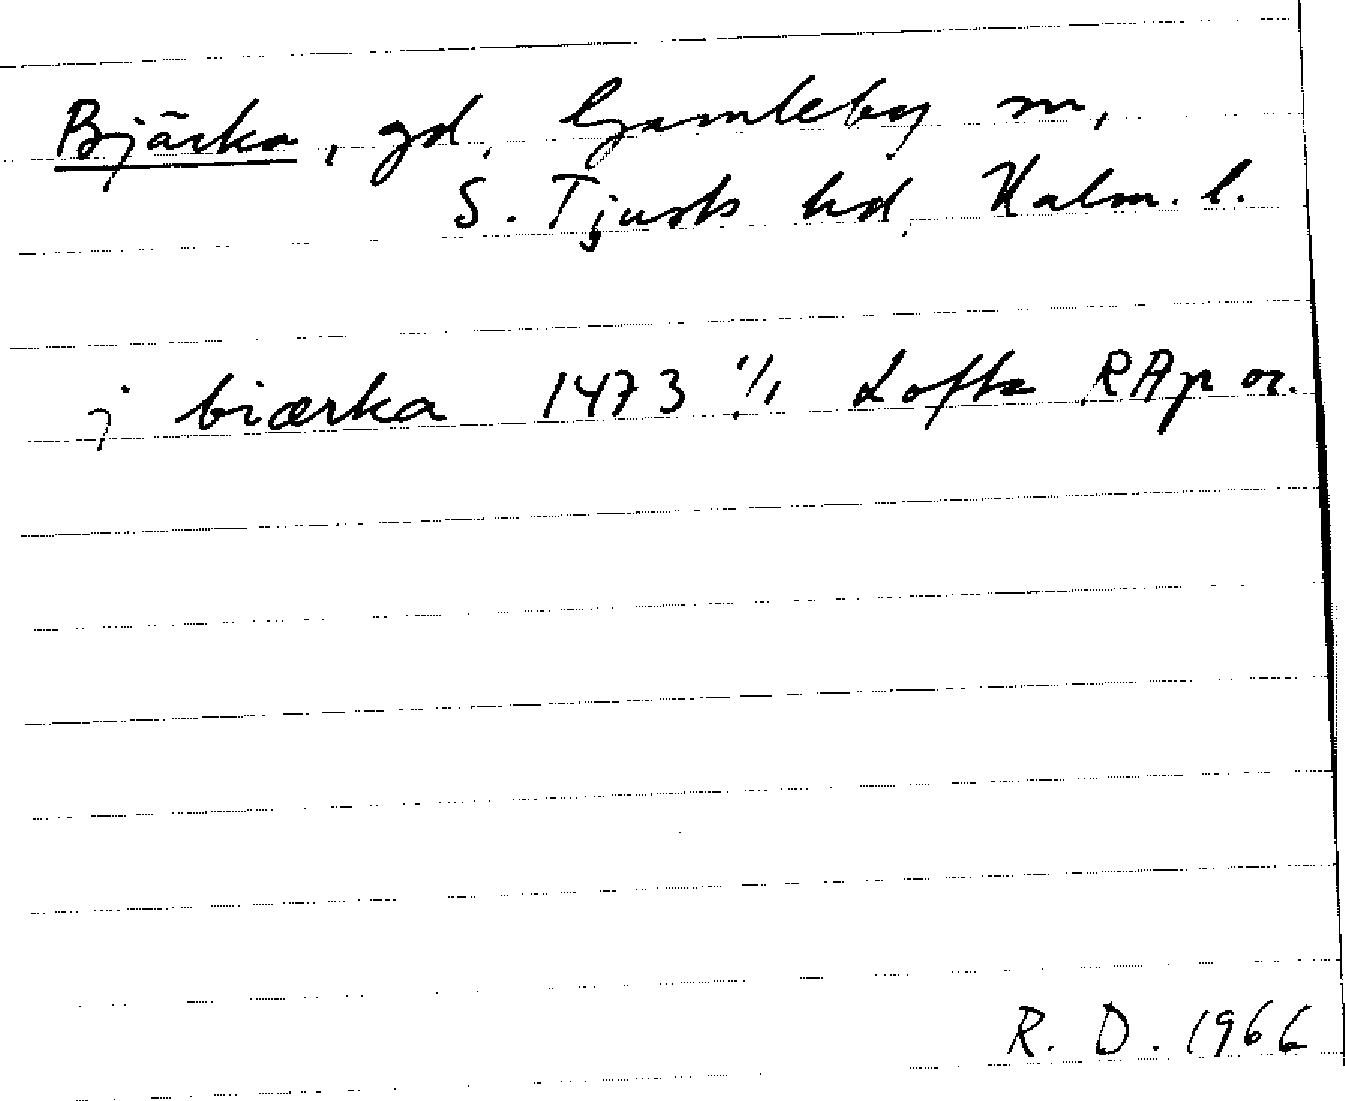 Bjärka, gd, Gamleby sn,
S. Tjusts hd, Kalm. l.
j biærka 1473 1/1 Lofta RAp or.
R. D. 1966